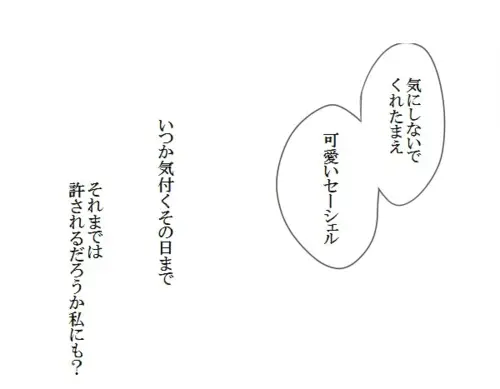 気にしないで
くれたまえ
可愛いセーシェル
いつか気付くその日まで
それまでは
許されるだろうか私にも？